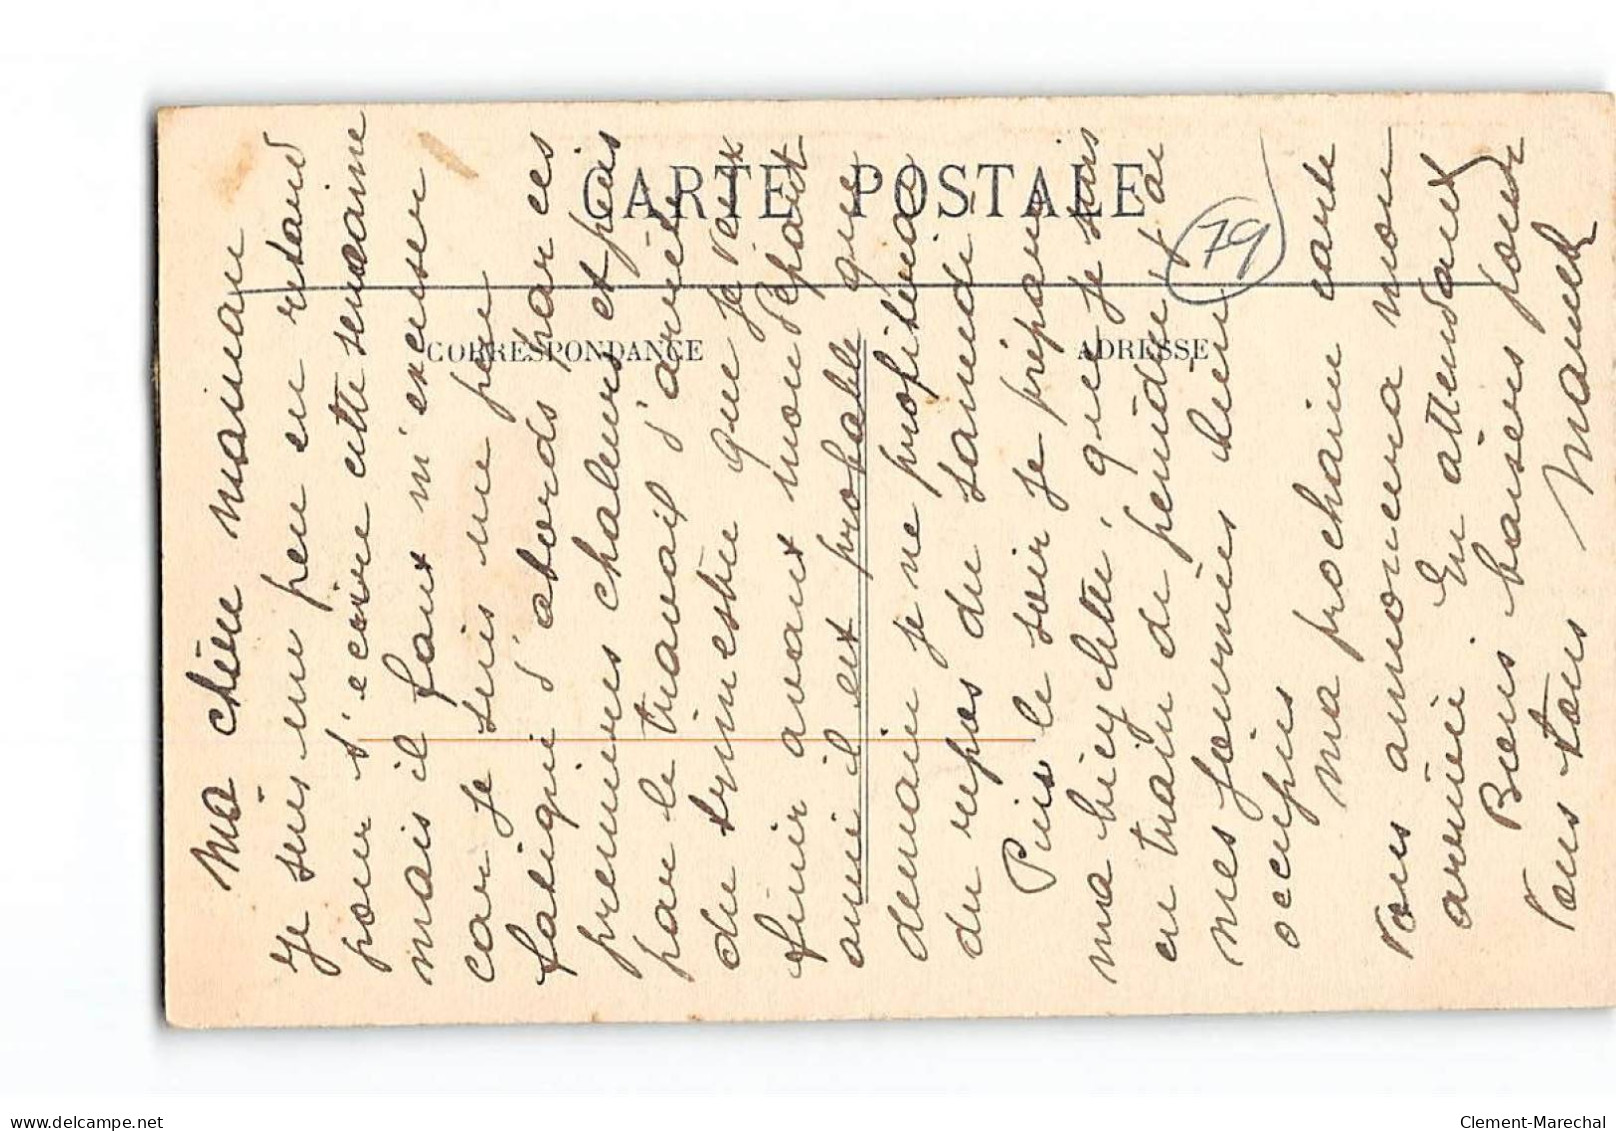 CARTE POSTALE
CORRESPONDANCE
ADRESSE
79
Ma chère maman
Je suis un peu en retard
pour t'ecrire cette semaine
mais il faut m'excuser
car je suis un peu
fatigué d'abords par ces
premieres chaleurs et puis
par le travail d'arriéré
du trimestre que je veux
finir avant mon départ
aussi il est probable que
demain je ne profiterai
du repos du samedi
Puis le soir je répare
ma bicyclette, que je suis
en train de peindre et ar
mes journées bien
occupées
Ma prochaine carte
vous annoncera mon
arrivée En attendant
Bons baisers pour
vous tous Marcel
delcampe.net
Clement-Marechal